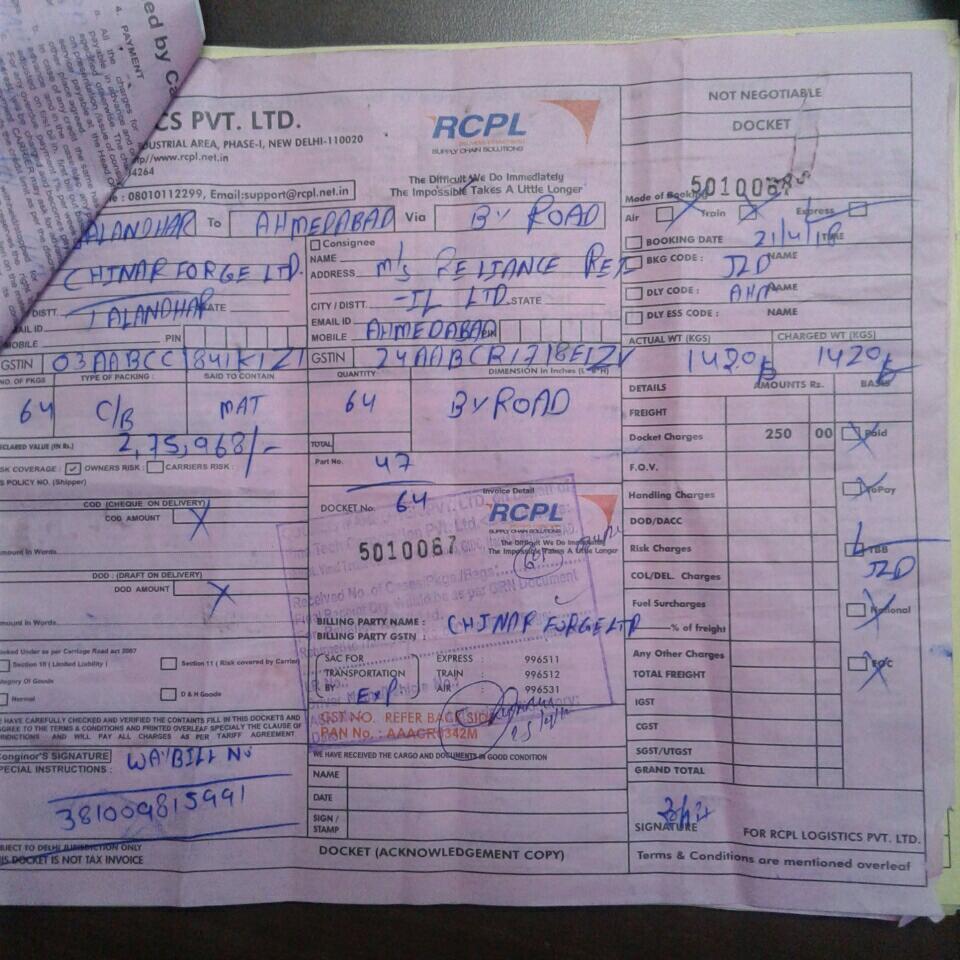 4. PAYMENT
CS PVT. LTD.
DUSTRIAL AREA, PHASE-I, NEW DELHI-110020
http//www.rcpl.net.in
94264
e : 08010112299, Email:support@rcpl.net.in
RCPL
SUPPLY CHAIN SOLUTIONS
The Difficult We Do Immediately
The Impossible Takes A Little Longer
NOT NEGOTIABLE
DOCKET
5010067
Mode of Booking
Air Train Express
JALANDHAR To AHMEDABAD Via BY ROAD
BOOKING DATE 21/4/18 TIME
BKG CODE : JZD NAME
DLY CODE : AHM NAME
DLY ESS CODE : NAMT.
CHINAR FORGE LTD.
JALANDHAR STATE
EMAIL ID
MOBILE PIN
GSTIN 03AABCC1841K1Z1
Consignee
NAME
ADDRESS M/s RELIANCE RET
CITY / DISTT. -IL LTD. STATE
EMAIL ID
MOBILE AHMEDABAD PIN
GSTIN 24AABCR1718E1ZV
ACTUAL WT (KGS) CHARGED WT (KGS)
1420 1420
NO. OF PKGS TYPE OF PACKING : SAID TO CONTAIN
64 C/B MAT
QUANTITY DIMENSION in Inches (L * H)
64 BY ROAD
TOTAL
DECLARED VALUE (IN Rs.) 2,75,968/-
RISK COVERAGE : OWNERS RISK : CARRIERS RISK :
S POLICY NO. (Shipper)
Part No. 47
DOCKET No. 64
COD (CHEQUE ON DELIVERY)
COD AMOUNT
Amount in Words
DOD : (DRAFT ON DELIVERY)
DOD AMOUNT
Amount in Words
Invoice Detail
RCPL
SUPPLY CHAIN SOLUTIONS
The Difficult We Do Immediately
The Impossible Takes A Little Longer
5010067
Received No. of Cases/Pkgs./Bags:
BILLING PARTY NAME : CHINAR FORGE LTD
BILLING PARTY GSTIN :
SAC FOR EXPRESS : 996511
TRANSPORTATION TRAIN : 996512
BY AIR : 996531
GST NO. REFER BACK SIDE
PAN No. : AAACR0342M
WE HAVE RECEIVED THE CARGO AND DOCUMENTS IN GOOD CONDITION
NAME
DATE
SIGN / STAMP
DOCKET (ACKNOWLEDGEMENT COPY)
Booked Under as per Carriage Road act 2007
Section 10 ( Limited Liability ) Section 11 ( Risk covered by Carrier
Category Of Goods
Normal D & H Goods
WE HAVE CAREFULLY CHECKED AND VERIFIED THE CONTAINTS FILL IN THIS DOCKETS AND
AGREE TO THE TERMS & CONDITIONS AND PRINTED OVERLEAF SPECIALY THE CLAUSE OF
AND WILL PAY ALL CHARGES AS PER TARIFF AGREEMENT
Conginor'S SIGNATURE
SPECIAL INSTRUCTIONS : WAYBILL No
381009815991
SUBJECT TO DELHI JURISDICTION ONLY
THIS DOCKET IS NOT TAX INVOICE
DETAILS AMOUNTS Rs. BASIS
FREIGHT
Docket Charges 250 00 Paid
F.O.V.
Handling Charges ToPay
DOD/DACC
Risk Charges TBB
COL/DEL. Charges JZD
Fuel Surcharges National
% of freight
Any Other Charges
TOTAL FREIGHT EOC
IGST
CGST
SGST/UTGST
GRAND TOTAL
SIGNATURE FOR RCPL LOGISTICS PVT. LTD.
Terms & Conditions are mentioned overleaf